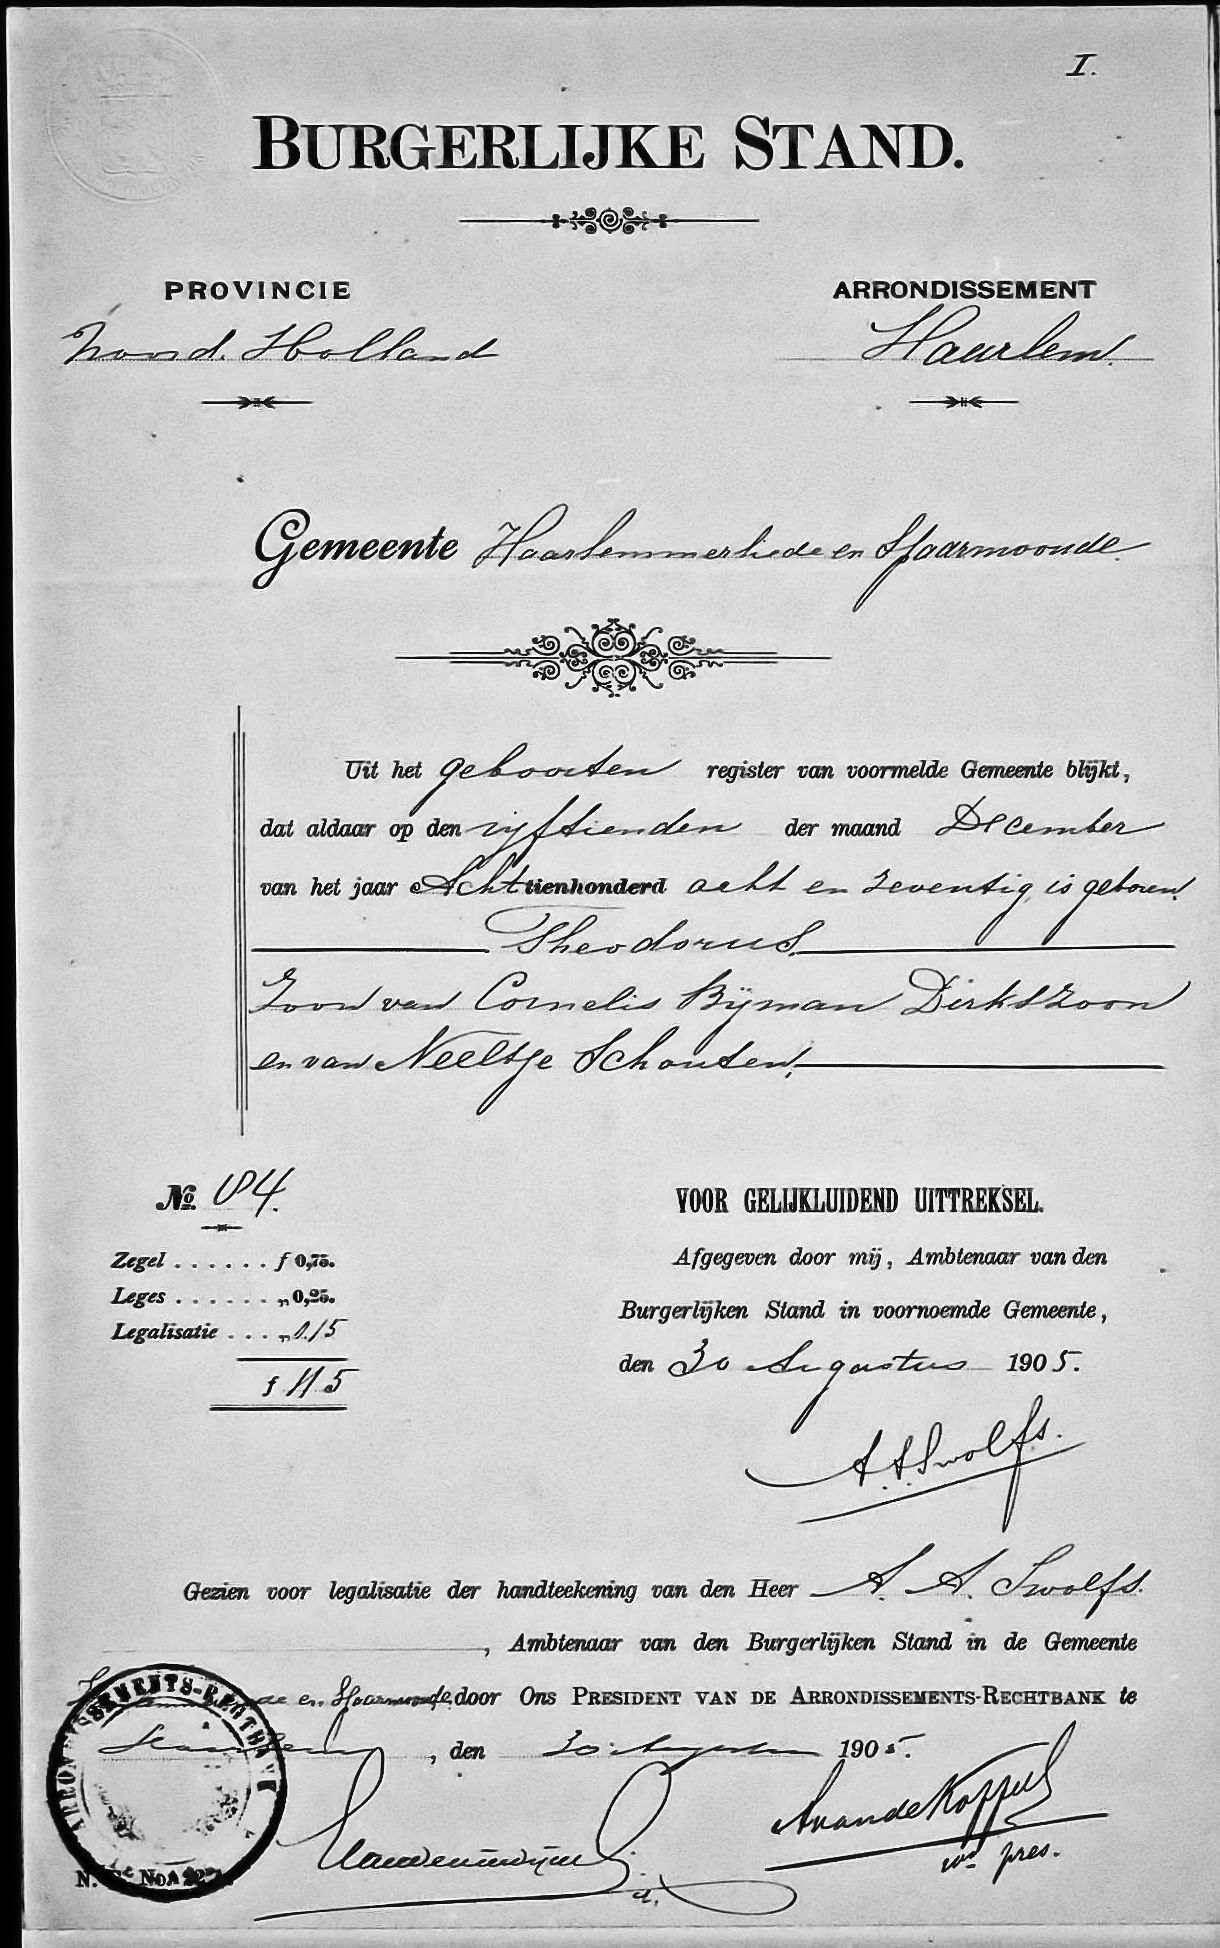 I.
BURGERLIJKE STAND.
PROVINCIE ARRONDISSEMENT
Noord. Holland Haarlem.
Gemeente Haarlemmerliede en Spaarnwoude.
Uit het geboorten register van voormelde Gemeente blijkt,
dat aldaar op den vijftienden der maand December
van het jaar Achttienhonderd acht en zeventig is geboren.
Theodorus.
Zoon van Cornelis Bijman Dirkszoon
en van Neeltje Schouten.
No. 84.
Zegel . . . . . . f 0,75.
Leges . . . . . . „ 0,25.
Legalisatie . . . „ 0.15
f 115
VOOR GELIJKLUIDEND UITTREKSEL.
Afgegeven door mij, Ambtenaar van den
Burgerlijken Stand in voornoemde Gemeente,
den 30 Augustus 1905.
A. A. Swolfs.
Gezien voor legalisatie der handteekening van den Heer A. A. Swolfs.
, Ambtenaar van den Burgerlijken Stand in de Gemeente
en Spaarnwoude, door Ons PRESIDENT VAN DE ARRONDISSEMENTS-RECHTBANK te
Haarlem, den 30 Augustus 1905.
ARRONDISSEMENTS-RECHTBANK
pres.